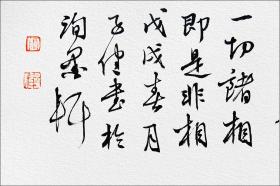 一切諸相
即是非相
戊戌春月
子健書於
洵墨軒